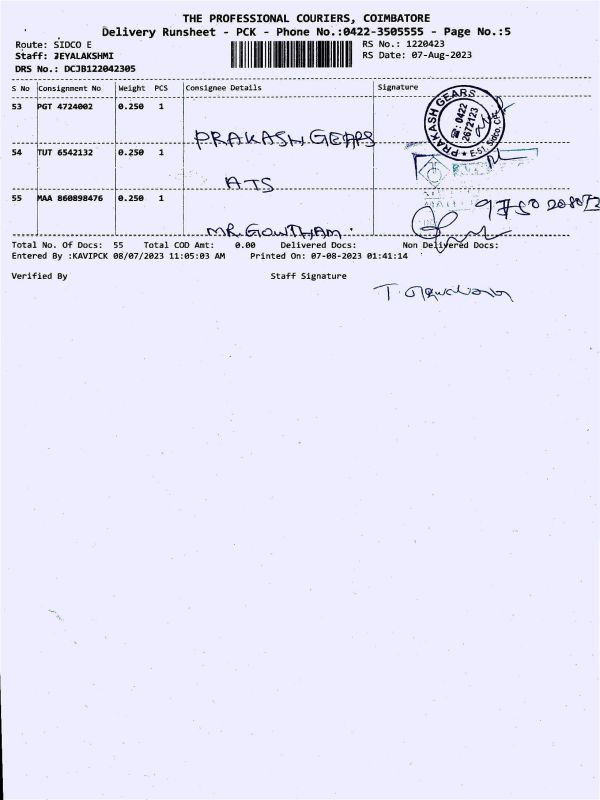 THE PROFESSIONAL COURIERS, COIMBATORE
Delivery Runsheet - PCK - Phone No.:0422-3505555 - Page No.:5
Route: SIDCO E RS No.: 1220423
Staff: JEYALAKSHMI RS Date: 07-Aug-2023
DRS No.: DCJB122042305
S No Consignment No Weight PCS Consignee Details Signature
53 PGT 4724002 0.250 1
PRAKASH GEARS
PRAKASH GEARS
☎: 0422
2672123
★ E-51, Sidco, CBE
54 TUT 6542132 0.250 1
ATS
55 MAA 860898476 0.250 1
MR. GOWTHAM.
Total No. Of Docs: 55 Total COD Amt: 0.00 Delivered Docs: Non Delivered Docs:
Entered By :KAVIPCK 08/07/2023 11:05:03 AM Printed On: 07-08-2023 01:41:14
Verified By Staff Signature